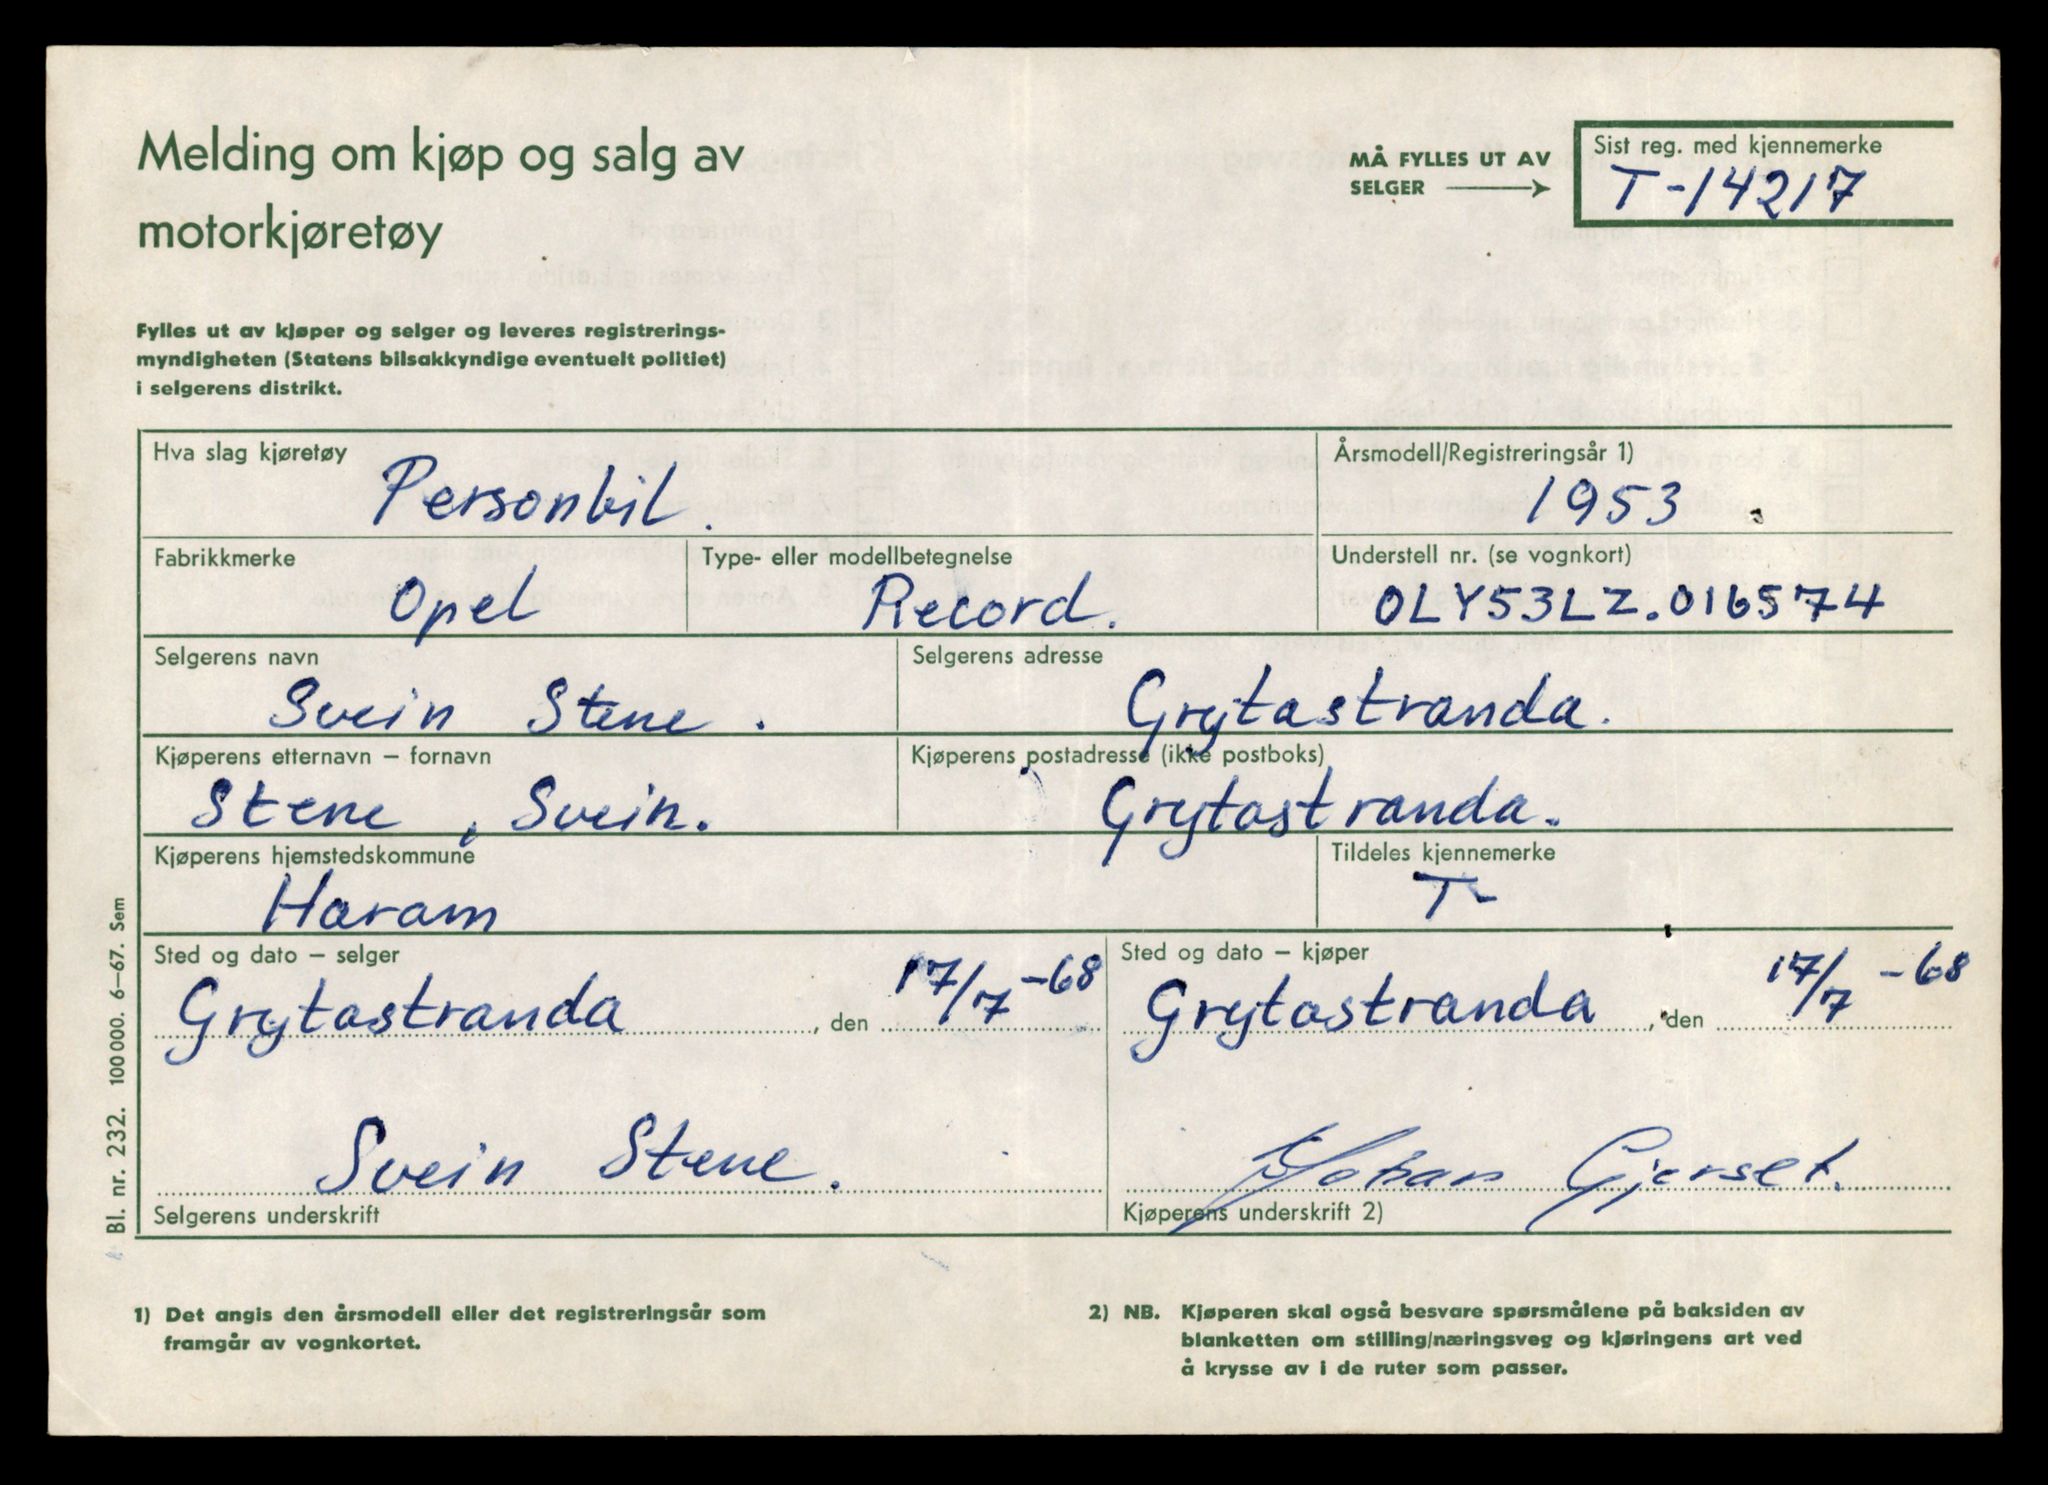 Melding om kjøp og salg av
motorkjøretøy
MÅ FYLLES UT AV
SELGER
Sist reg. med kjennemerke
T-14217
Fylles ut av kjøper og selger og leveres registrerings-
myndigheten (Statens bilsakkyndige eventuelt politiet)
i selgerens distrikt.
Hva slag kjøretøy
Personbil.
Årsmodell/Registreringsår 1)
1953
Fabrikkmerke
Opel
Type- eller modellbetegnelse
Record.
Understell nr. (se vognkort)
OLY53LZ.016574
Selgerens navn
Svein Stene.
Selgerens adresse
Grytastranda.
Kjøperens etternavn – fornavn
Stene, Svein.
Kjøperens postadresse (ikke postboks)
Grytastranda.
Kjøperens hjemstedskommune
Haram
Tildeles kjennemerke
T-
Sted og dato – selger
Grytastranda, den 17/7-68
Sted og dato – kjøper
Grytastranda, den 17/7-68
Svein Stene.
Selgerens underskrift
Johan Gjerset.
Kjøperens underskrift 2)
Bl. nr. 232. 100 000. 6–67. Sem
1) Det angis den årsmodell eller det registreringsår som
framgår av vognkortet.
2) NB. Kjøperen skal også besvare spørsmålene på baksiden av
blanketten om stilling/næringsveg og kjøringens art ved
å krysse av i de ruter som passer.